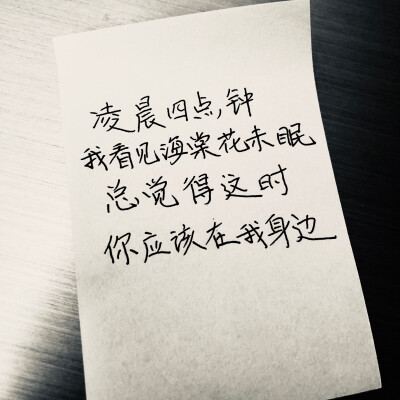 凌晨四点,钟
我看见海棠花未眠
总觉得这时
你应该在我身边